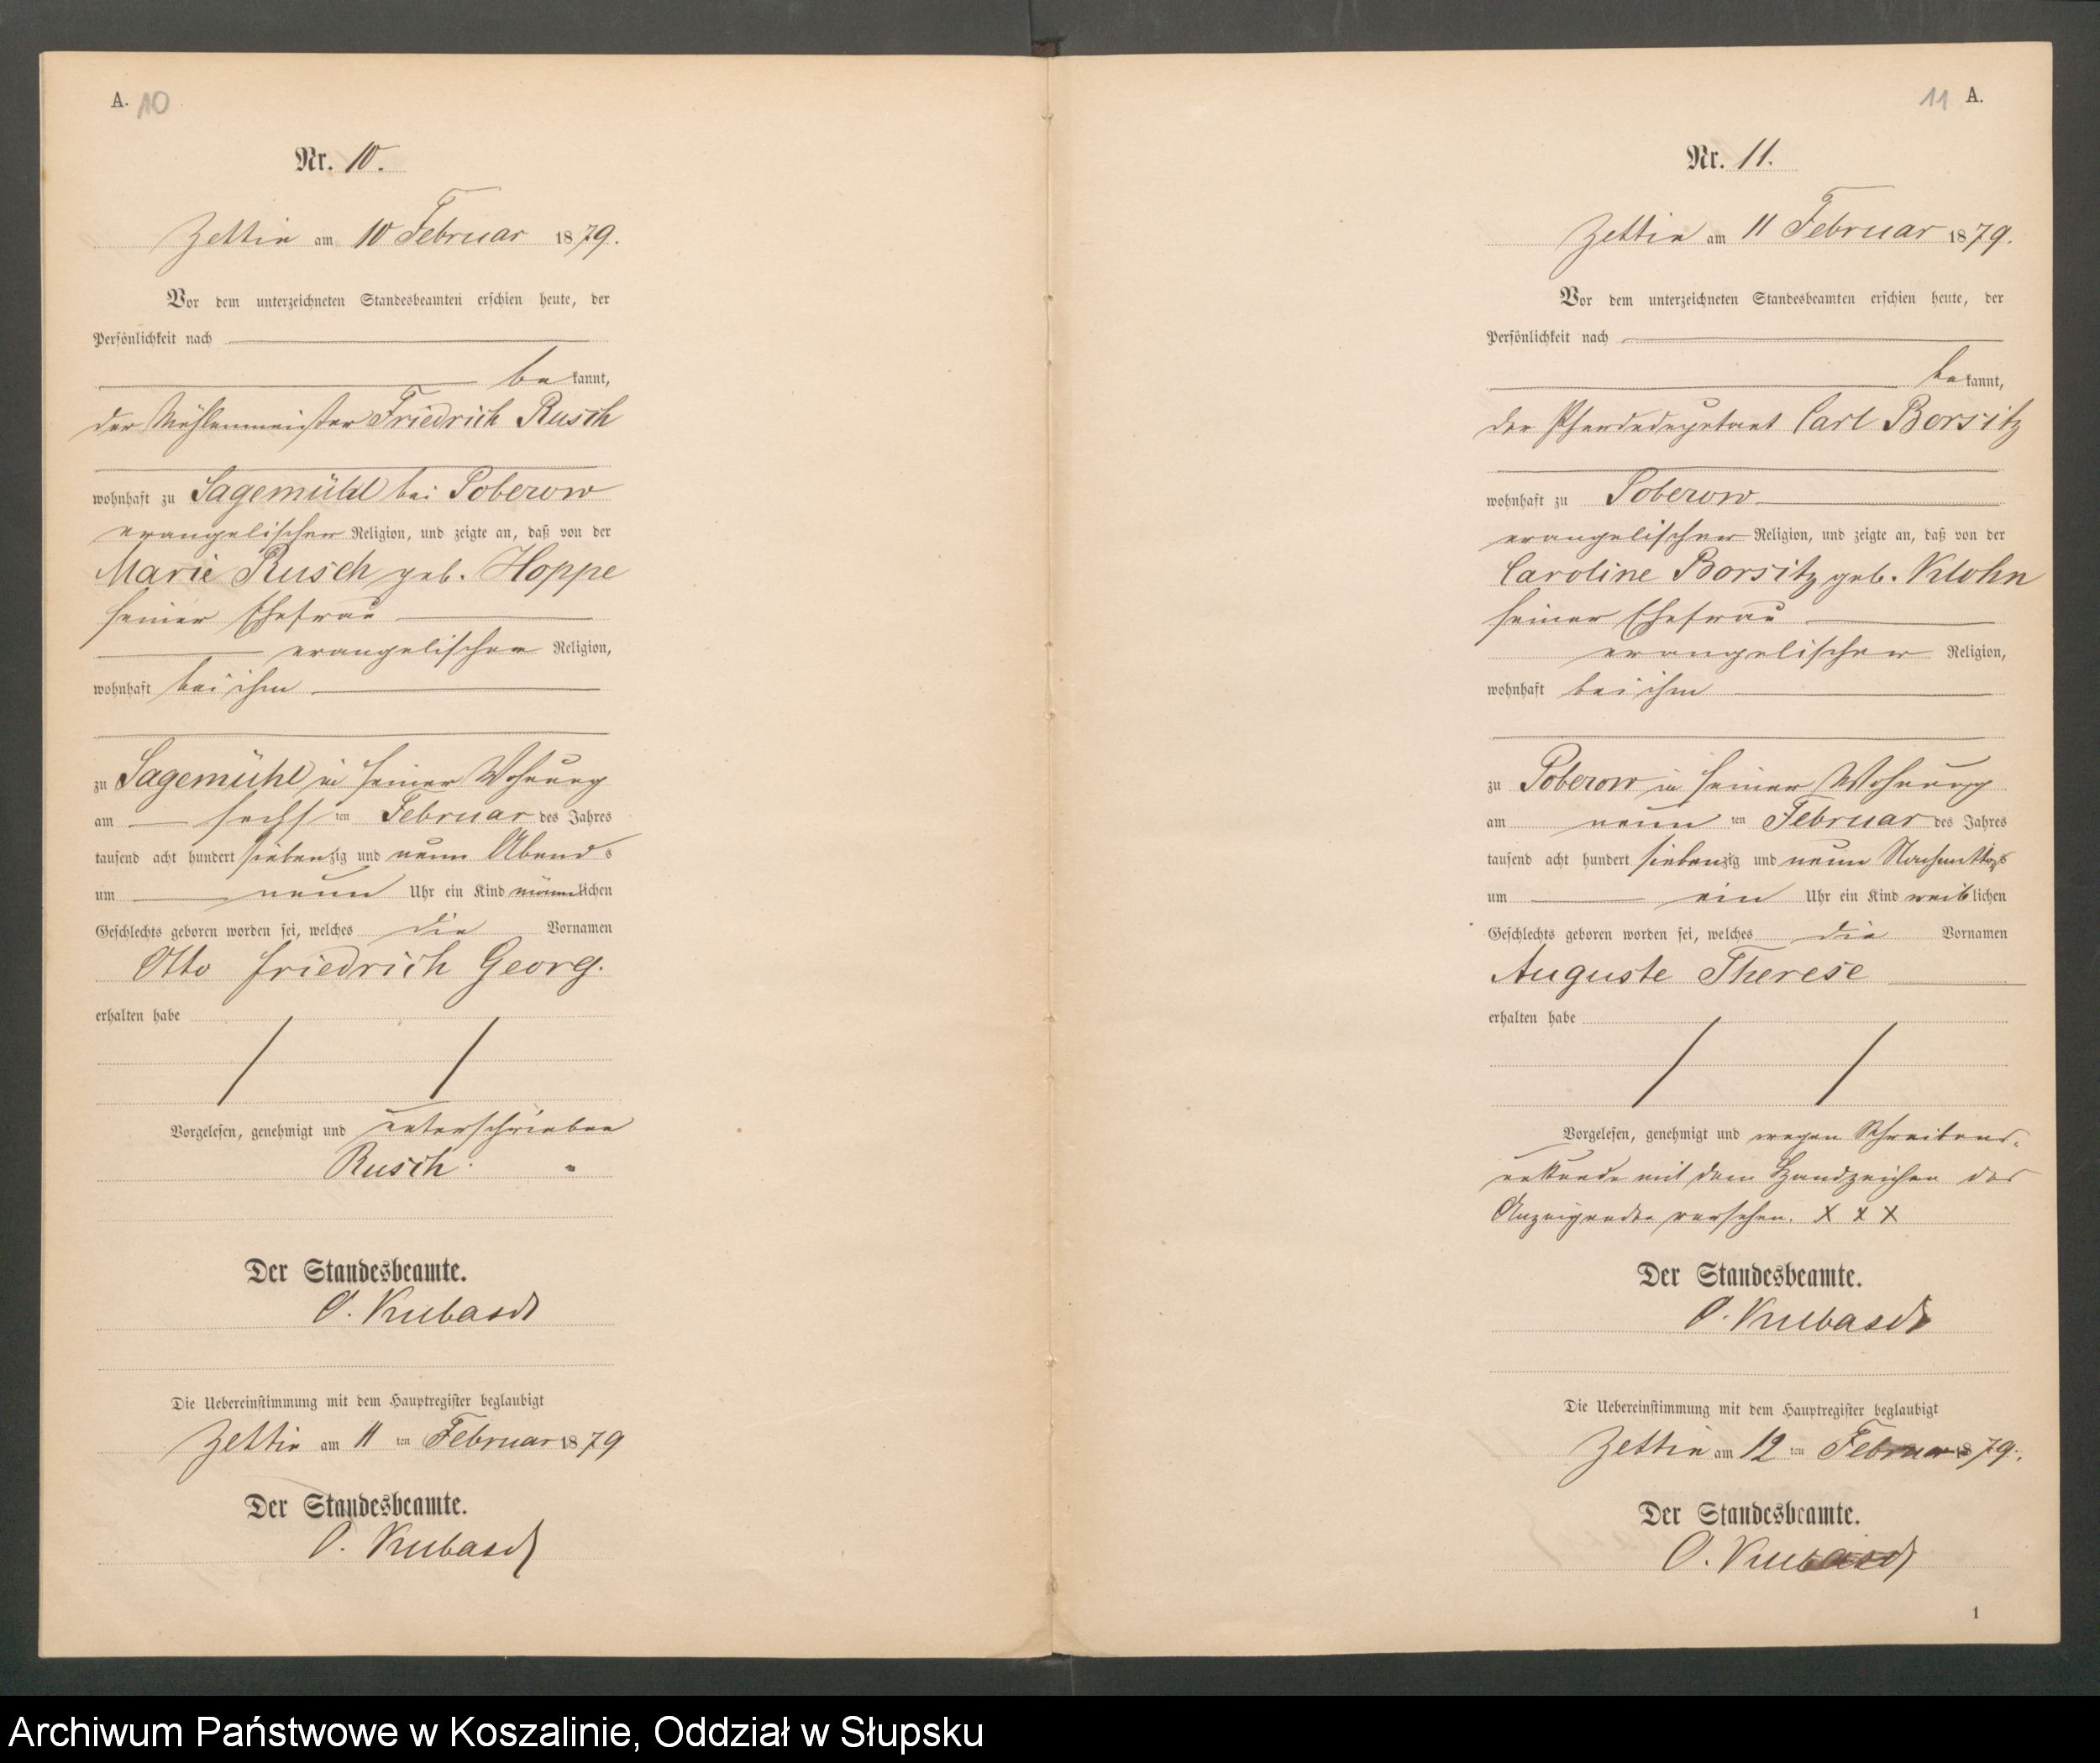 A. 10
Nr. 10.
Zettin am 10 Februar 1879.
Vor dem unterzeichneten Standesbeamten erschien heute, der
Persönlichkeit nach
bekannt,
der Mühlenmeister Friedrich Rusch
wohnhaft zu Sagemühl bei Poberow
evangelischer Religion, und zeigte an, daß von der
Marie Rusch geb. Hoppe
seiner Ehefrau
evangelischer Religion,
wohnhaft bei ihm
zu Sagemühl in seiner Wohnung
am sechsten Februar des Jahres
tausend acht hundert siebenzig und neun Abends
um neun Uhr ein Kind männlichen
Geschlechts geboren worden sei, welches die Vornamen
Otto Friedrich Georg.
erhalten habe
Vorgelesen, genehmigt und unterschrieben
Rusch.
Der Standesbeamte.
O. Kubasch
Die Uebereinstimmung mit dem Hauptregister beglaubigt
Zettin am 11 ten Februar 1879
Der Standesbeamte.
O. Kubasch
11 A.
Nr. 11.
Zettin am 11 Februar 1879.
Vor dem unterzeichneten Standesbeamten erschien heute, der
Persönlichkeit nach
bekannt,
der Pferdedeputant Carl Borsitz
wohnhaft zu Poberow
evangelischer Religion, und zeigte an, daß von der
Caroline Borsitz geb. Klohn
seiner Ehefrau
evangelischer Religion,
wohnhaft bei ihm
zu Poberow in seiner Wohnung
am neunten Februar des Jahres
tausend acht hundert siebenzig und neun Nachmittags
um ein Uhr ein Kind weiblichen
Geschlechts geboren worden sei, welches die Vornamen
Auguste Therese
erhalten habe
Vorgelesen, genehmigt und wegen Schreibens-
unkunde mit dem Handzeichen des
Anzeigenden versehen. X X X
Der Standesbeamte.
O. Kubasch
Die Uebereinstimmung mit dem Hauptregister beglaubigt
Zettin am 12 ten Februar 1879.
Der Standesbeamte.
O. Kubasch
1
Archiwum Państwowe w Koszalinie, Oddział w Słupsku